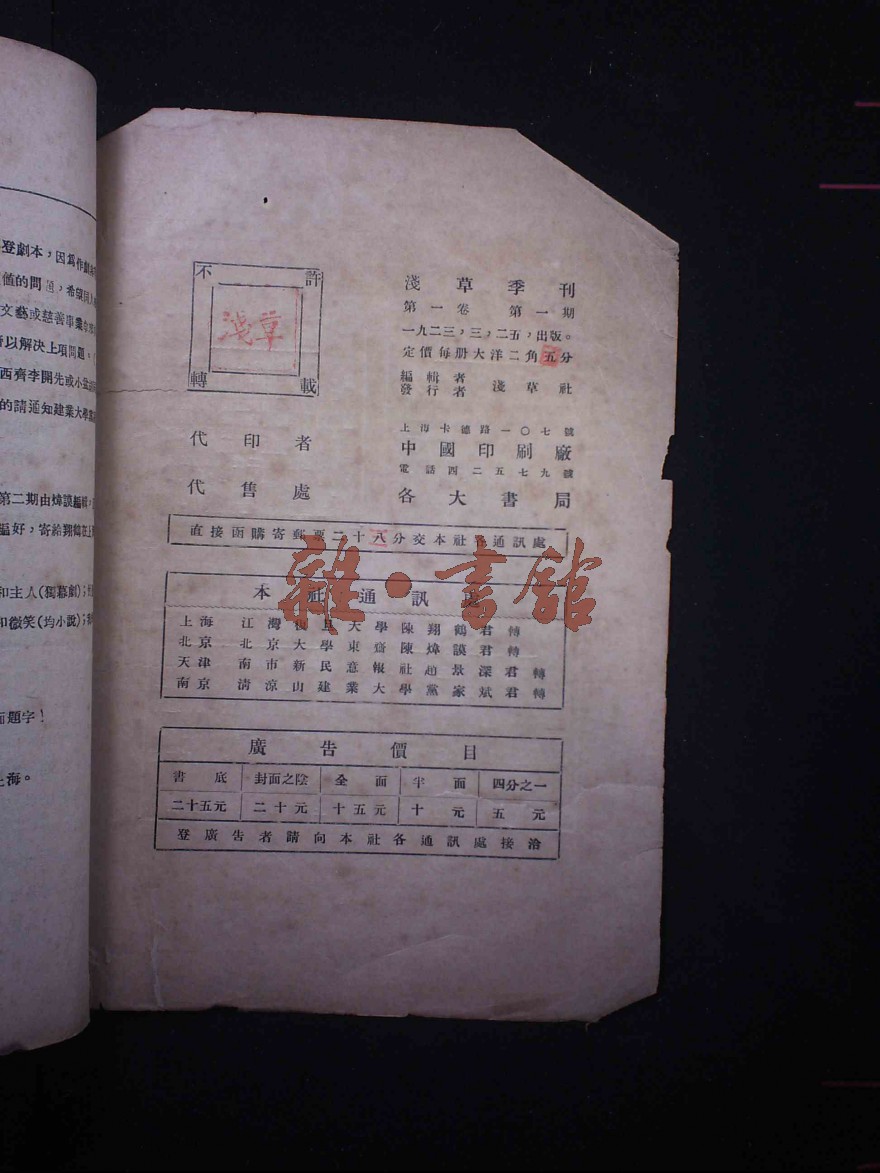 登劇本，因爲作劇
値的問題，希望同人
文藝或慈善事業
以解決上項問題，
西齊李開先或小
的請通知建業大學
第二期由煒謨編輯，
編好，寄給翔鶴在上
和主人(獨幕劇)；
和微笑(均小說)；
面題字！
上海。
不許
淺草
轉載
淺草季刊
第一卷 第一期
一九二三，三，二五，出版。
定價每册大洋二角五分
編輯者
發行者
淺草社
上海卡德路一〇七號
代印者 中國印刷廠
電話四二五七九號
代售處 各大書局
直接函購寄郵票二十八分交本社各通訊處
本社通訊處
上海 江灣復旦大學陳翔鶴君轉
北京 北京大學東齋陳煒謨君轉
天津 南市新民意報社趙景深君轉
南京 清凉山建業大學黨家斌君轉
廣告價目
書底 封面之陰 全面 半面 四分之一
二十五元 二十元 十五元 十元 五元
登廣告者請向本社各通訊處接洽
雜·書館